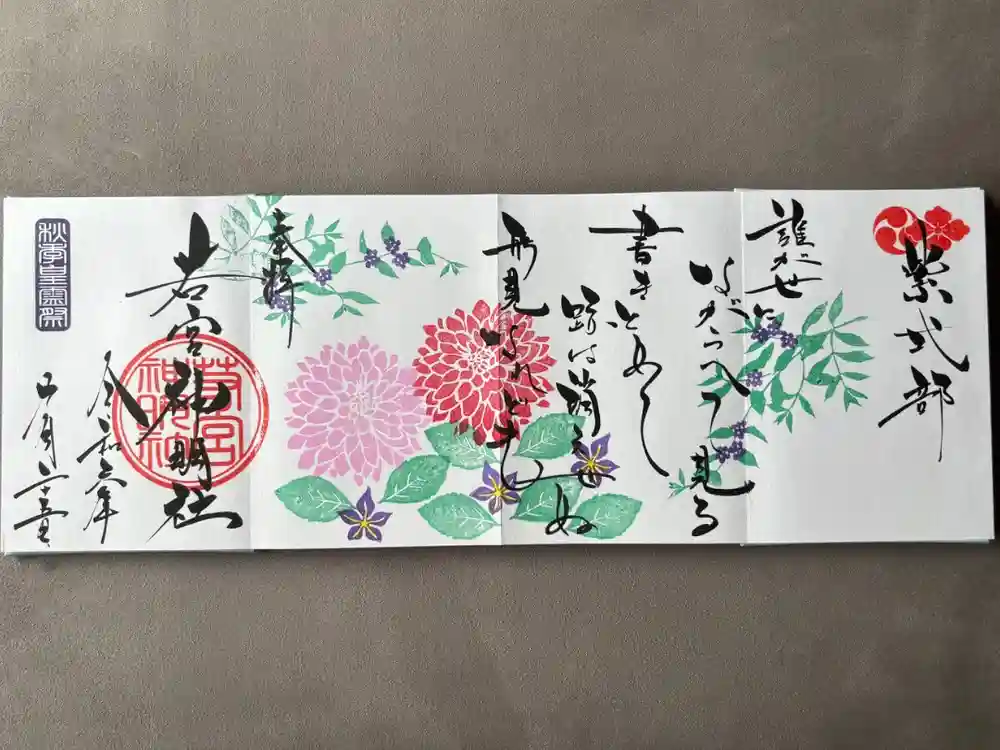 紫式部
誰が世に
ながらへて見る
書きとめし
跡は消えせぬ
形見なれども
奉拝
若宮神明社
若宮神明社
令和六年
九月
秋季皇霊祭